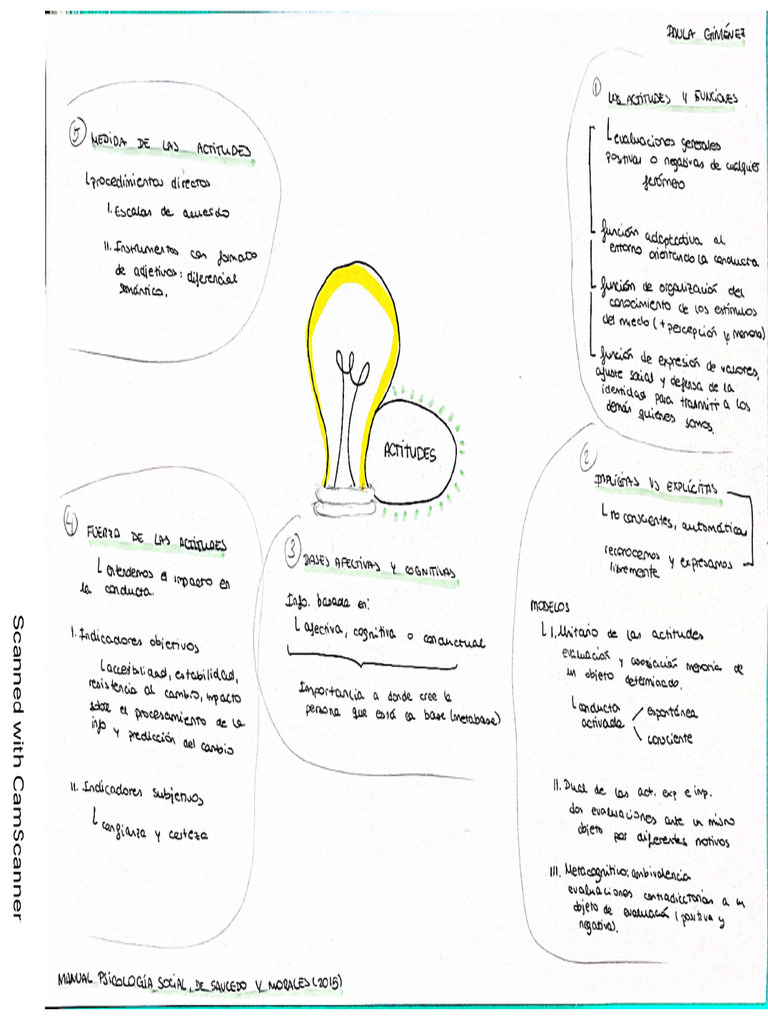 PAULA GIMÉNEZ
1
LAS ACTITUDES Y FUNCIONES
evaluaciones generales
positivas o negativas de cualquier
fenómeno
función adaptativa al
entorno orientando la conducta
función de organización del
conocimiento de los estímulos
del medio (+ percepción y memoria)
función de expresión de valores,
ajuste social y defensa de la
identidad para transmitir a los
demás quienes somos.
2
IMPLÍCITAS VS EXPLÍCITAS
no conscientes, automática
reconocemos y expresamos
libremente
MODELOS
I. Unitario de las actitudes
evaluación y asociación memoria de
un objeto determinado.
conducta
activada
espontánea
consciente
II. Dual de las act. exp e imp.
dos evaluaciones ante un mismo
objeto por diferentes motivos
III. Metacognitivo: ambivalencia
evaluaciones contradictorias a un
objeto de evaluación (positiva y
negativa).
3
BASES AFECTIVAS Y COGNITIVAS
Info. basada en:
afectiva, cognitiva o conductual
Importancia a donde cree la
persona que está la base (metabase)
4
FUERZA DE LAS ACTITUDES
entendemos el impacto en
la conducta.
I. Indicadores objetivos
accesibilidad, estabilidad,
resistencia al cambio, impacto
sobre el procesamiento de la
info y predicción del cambio
II. Indicadores subjetivos
confianza y certeza
5
MEDIDA DE LAS ACTITUDES
procedimientos directos
I. Escalas de acuerdo
II. Instrumentos con formato
de adjetivos: diferencial
semántico.
ACTITUDES
MANUAL PSICOLOGÍA SOCIAL, DE SAUCEDO Y MORALES (2015)
Scanned with CamScanner